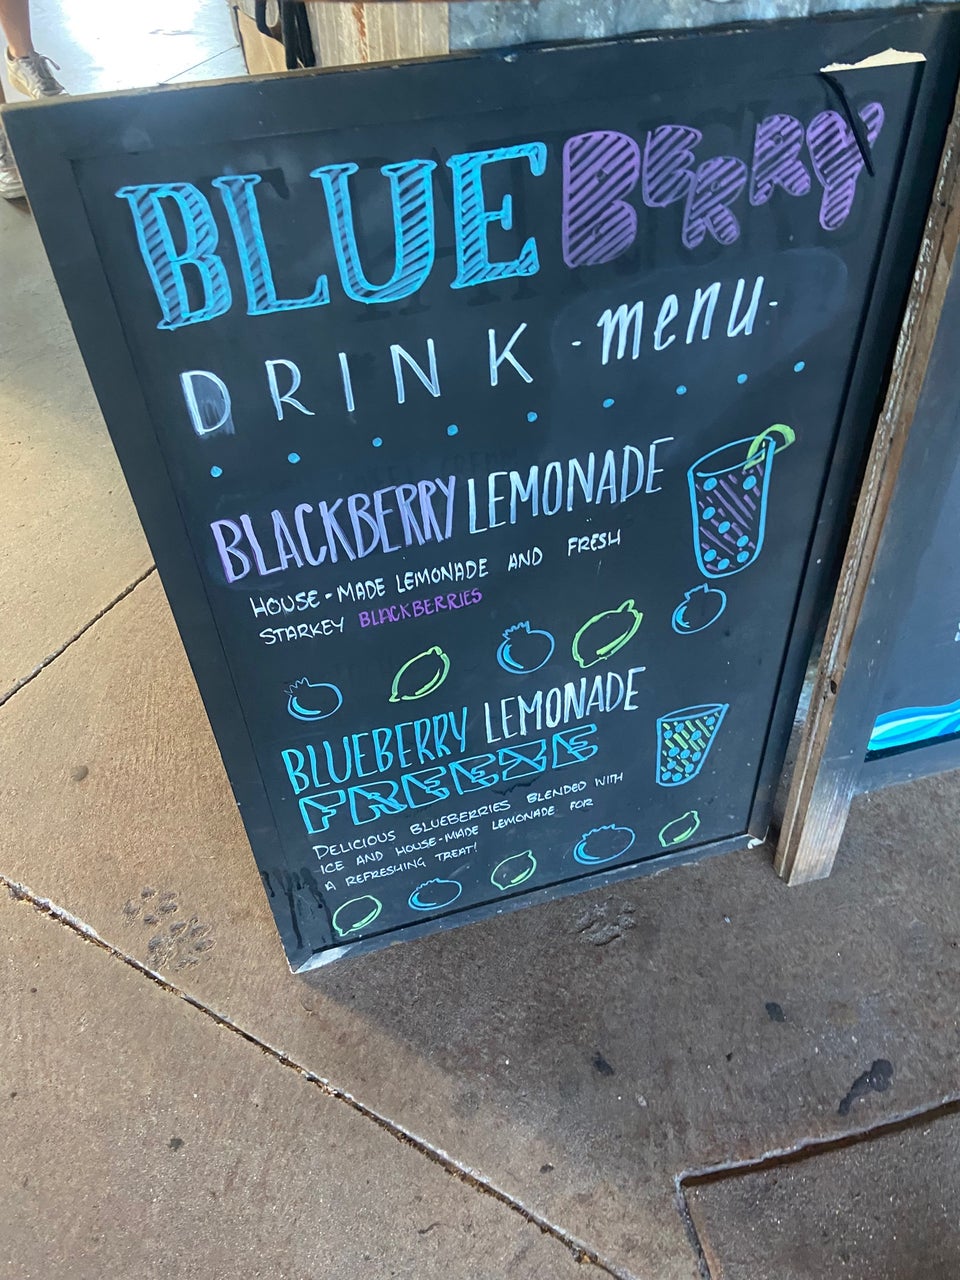 BLUEBERRY
DRINK -menu-
BLACKBERRY LEMONADE
HOUSE-MADE LEMONADE AND FRESH
STARKEY BLACKBERRIES
BLUEBERRY LEMONADE
FREEZE
DELICIOUS BLUEBERRIES BLENDED WITH
ICE AND HOUSE-MADE LEMONADE FOR
A REFRESHING TREAT!